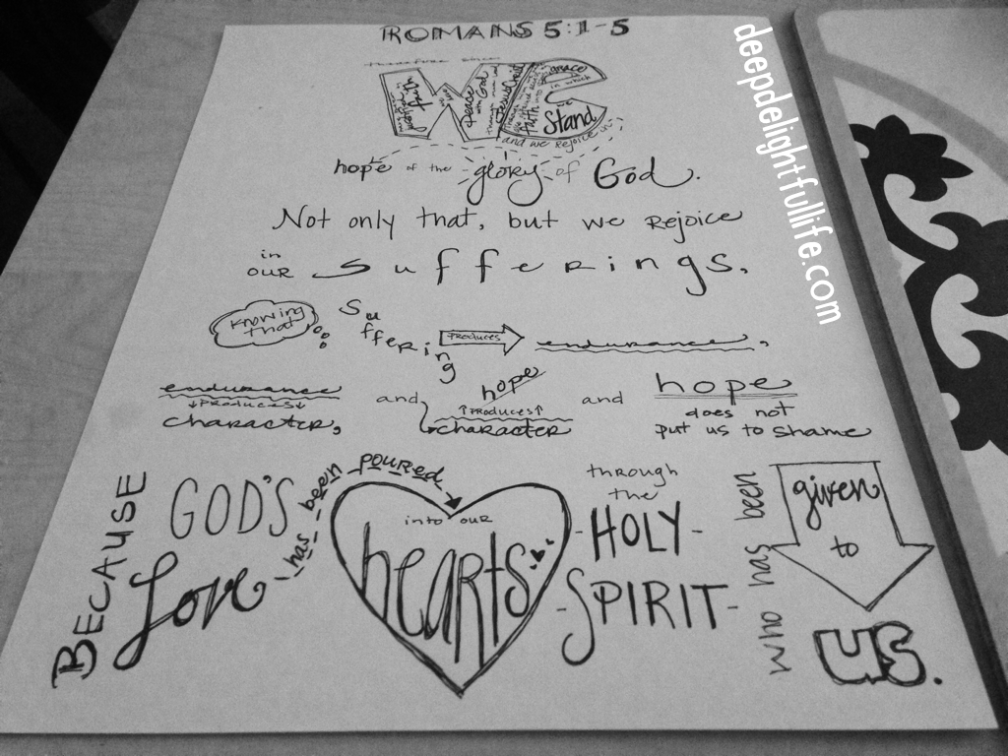 ROMANS 5:1-5
therefore since
WE
justified by faith
Peace with God
through
Jesus Christ
faith into
GRACE
in which
we
Stand
and we rejoice in
hope of the glory of God.
Not only that, but we Rejoice
in
OUR Sufferings,
Knowing
that
Suffering PRODUCES endurance,
endurance
PRODUCES
character,
and
hope
PRODUCES
character
and
hope
does not
put us to shame
BECAUSE
GOD'S
Love
has been poured
into our
hearts
through
the
HOLY
SPIRIT
who has been
given
to
us.
deepdelightfullife.com